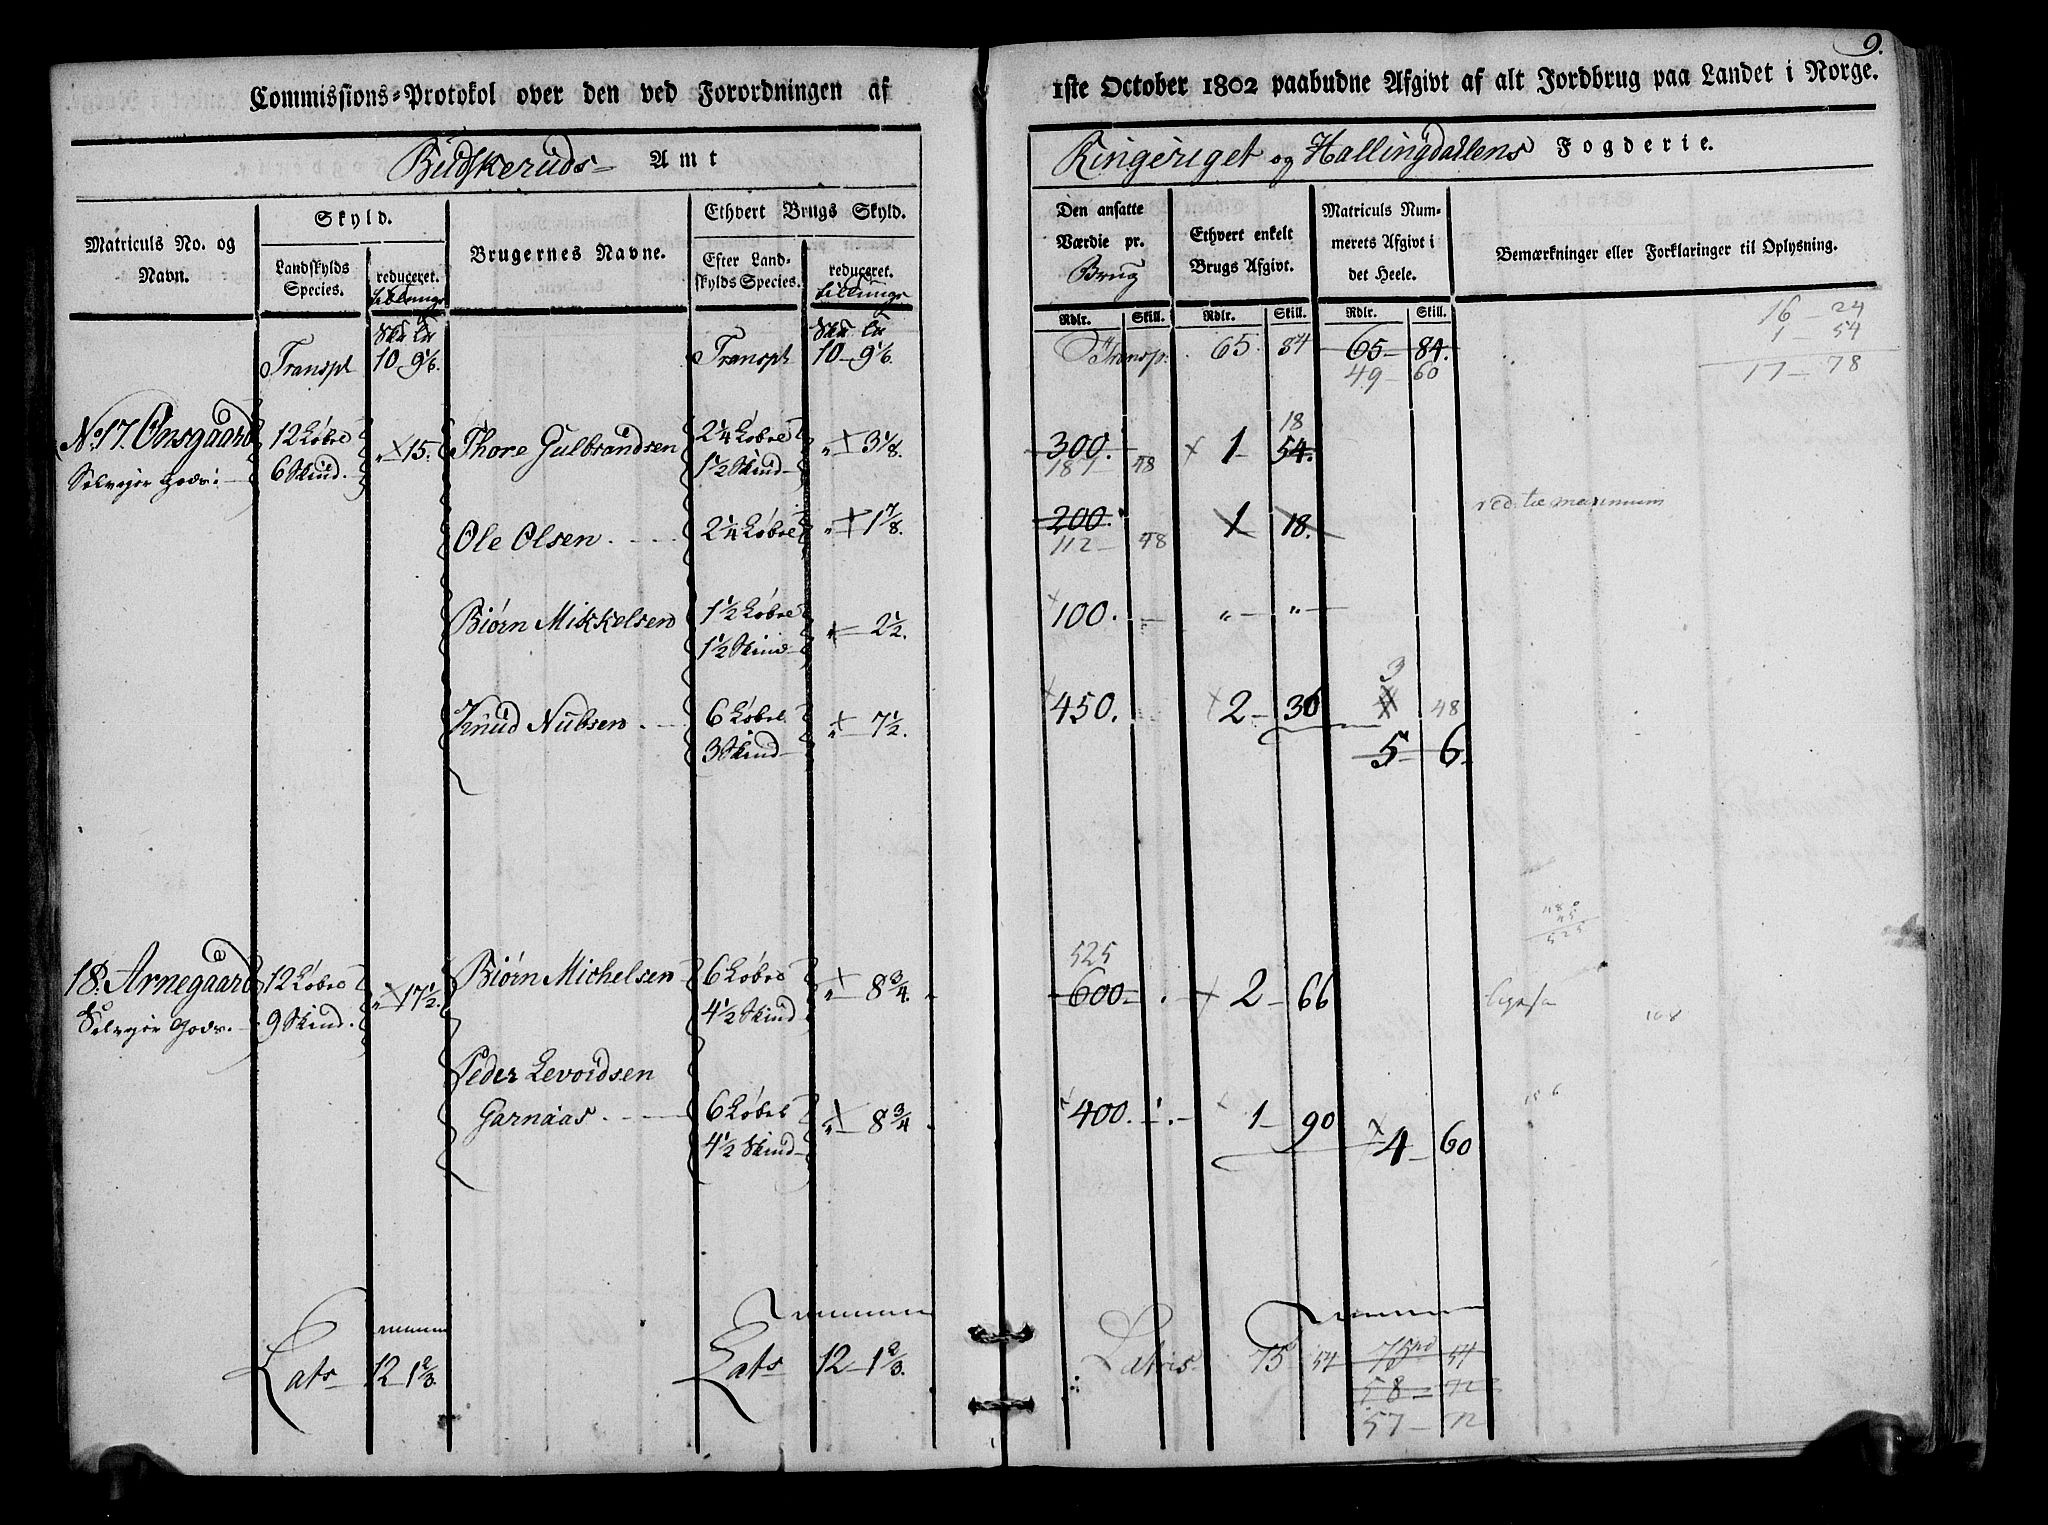 9.
Commissions-Protokol over den ved Forordningen af 1ste October 1802 paabudne Afgivt af alt Jordbrug paa Landet i Norge.
Budskeruds Amt
Ringeriget og Hallingdallens Fogderie.
Matriculs No. og Navn.
Skyld.
Landskylds Species.
reduceret.
Brugernes Navne.
Ethvert Brugs Skyld.
Efter Landskylds Species.
reduceret.
Den ansatte Værdie pr. Brug
Ethvert enkelt Brugs Afgivt.
Matriculs Nummerets Afgivt i det Heele.
Bemærkninger eller Forklaringer til Oplysning.
Rdlr. Skill. Rdlr. Skill. Rdlr. Skill.
16 - 24
1 - 54
17 - 78
Transpt 10 - 9 1/6. Transpt 10 - 9 1/6. Transp. 65 84 65 - 84.
49 - 60
No 17. Onsgaard 12 Løbe 15. Thore Gulbrandsen 2 1/4 Løbe 3 1/8. 300. 1 - 54. 18
Selveier Gods 6 Skind. 1 1/2 Skind 187 48
red. til maximum
Ole Olsen 2 1/4 Løbe 1 7/8. 200. 1 18.
112 - 48
Biørn Mikkelsen 1 1/2 Løbe 2 1/2. 100. " - "
1 1/2 Skind
Knud Nubsen 6 Løbe 7 1/2. 450. 2 - 30 3 48
3 Skind 5 - 6
480
45
525
525
18. Arnegaard 12 Løbe 17 1/2. Biørn Michelsen 6 Løbe 8 3/4. 600 2 - 66
Selveier Gods. 9 Skind. 4 1/2 Skind
108
Peder Levordsen
Garnaas 6 Løbe 8 3/4 400. 1 - 90 4 - 60
4 1/2 Skind
156
Lats 12 - 1 2/3. Lats 12 - 1 2/3. Lateris 75 54 75 54
58 - 72
57 - 72